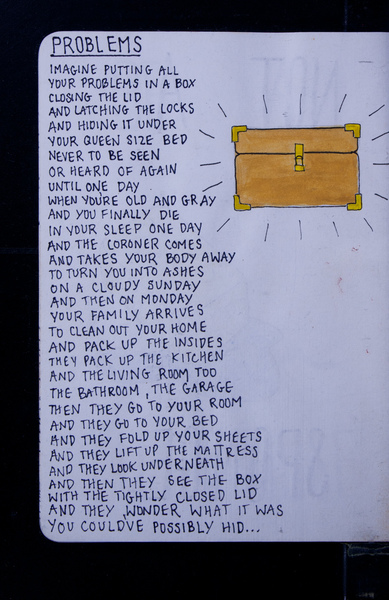 PROBLEMS
IMAGINE PUTTING ALL
YOUR PROBLEMS IN A BOX
CLOSING THE LID
AND LATCHING THE LOCKS
AND HIDING IT UNDER
YOUR QUEEN SIZE BED
NEVER TO BE SEEN
OR HEARD OF AGAIN
UNTIL ONE DAY
WHEN YOU'RE OLD AND GRAY
AND YOU FINALLY DIE
IN YOUR SLEEP ONE DAY
AND THE CORONER COMES
AND TAKES YOUR BODY AWAY
TO TURN YOU INTO ASHES
ON A CLOUDY SUNDAY
AND THEN ON MONDAY
YOUR FAMILY ARRIVES
TO CLEAN OUT YOUR HOME
AND PACK UP THE INSIDES
THEY PACK UP THE KITCHEN
AND THE LIVING ROOM TOO
THE BATHROOM, THE GARAGE
THEN THEY GO TO YOUR ROOM
AND THEY GO TO YOUR BED
AND THEY FOLD UP YOUR SHEETS
AND THEY LIFT UP THE MATTRESS
AND THEY LOOK UNDERNEATH
AND THEN THEY SEE THE BOX
WITH THE TIGHTLY CLOSED LID
AND THEY WONDER WHAT IT WAS
YOU COULD'VE POSSIBLY HID...